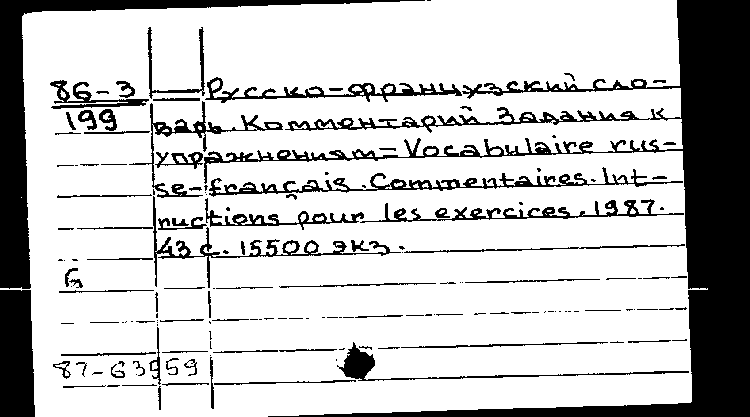 86-3 — Русско-французский сло-
199
варь. Комментарий Задания к
упражнениям = Vocabulaire rus-
se-français. Commentaires. Int-
ructions pour les exercices. 1987.
43 с. 15500 экз.
87-63959